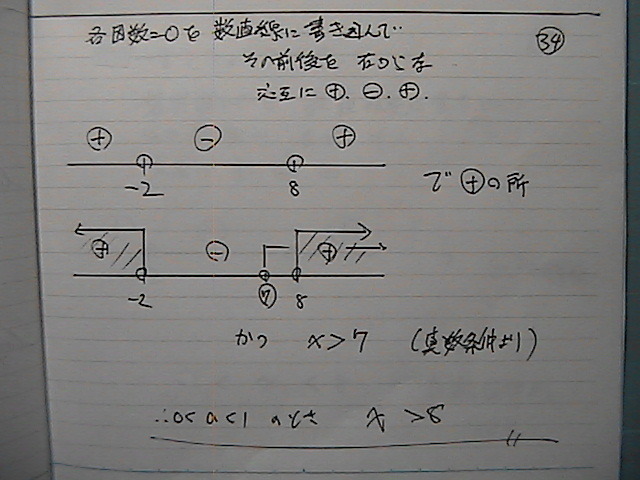 各因数=0を 数直線に書き込んで…
㉞
その前後を 右から
交互に ⊕. ⊖. ⊕.
⊕ ⊖ ⊕
-2 8
で ⊕の所
⊕ ⊖ ⊕
-2 ⑦ 8
かつ x>7 (真数条件より)
∴0<a<1のとき x>8